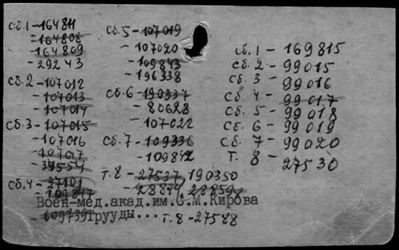 сб.1-164811
-164808
-164809
-29243
сб.2-107012
-107013
-107014
сб.3-107015
-107016
-107017
сб.4-27101
Воен-мед.акад.им.С.М.Кирова
Трууды... т.8-27588
сб.5-107019
-107020
-109843
-196338
сб.6-190337
-80628
-107022
сб.7-109336
-109842
т.8-27537 190350
-28879 28859
сб.1-169815
сб.2-99015
сб.3-99016
сб.4-99017
сб.5-99018
сб.6-99019
сб.7-99020
т.8-27530